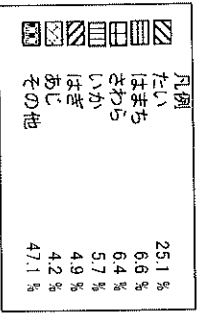 凡例
たい 25.1 %
はまち 6.6 %
さわら 6.4 %
いか 5.7 %
はぎ 4.9 %
あじ 4.2 %
その他 47.1 %